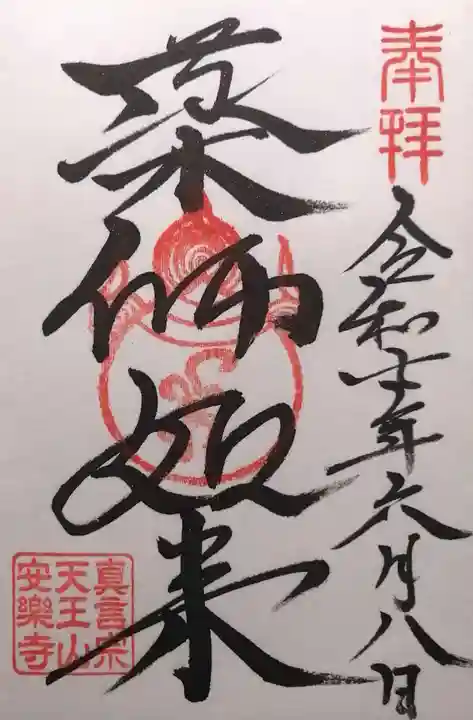 奉拝
令和五年六月八日
薬師如来
真言宗
天王山
安樂寺